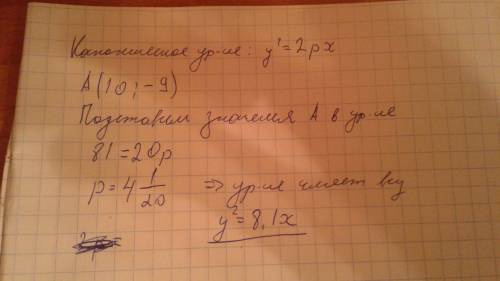 Каноническое ур-ие: y² = 2px
A(10; -9)
Подставим значения A в ур-ие
81 = 20p
p = 4 1/20 => ур-ие имеет вид
y² = 8,1x